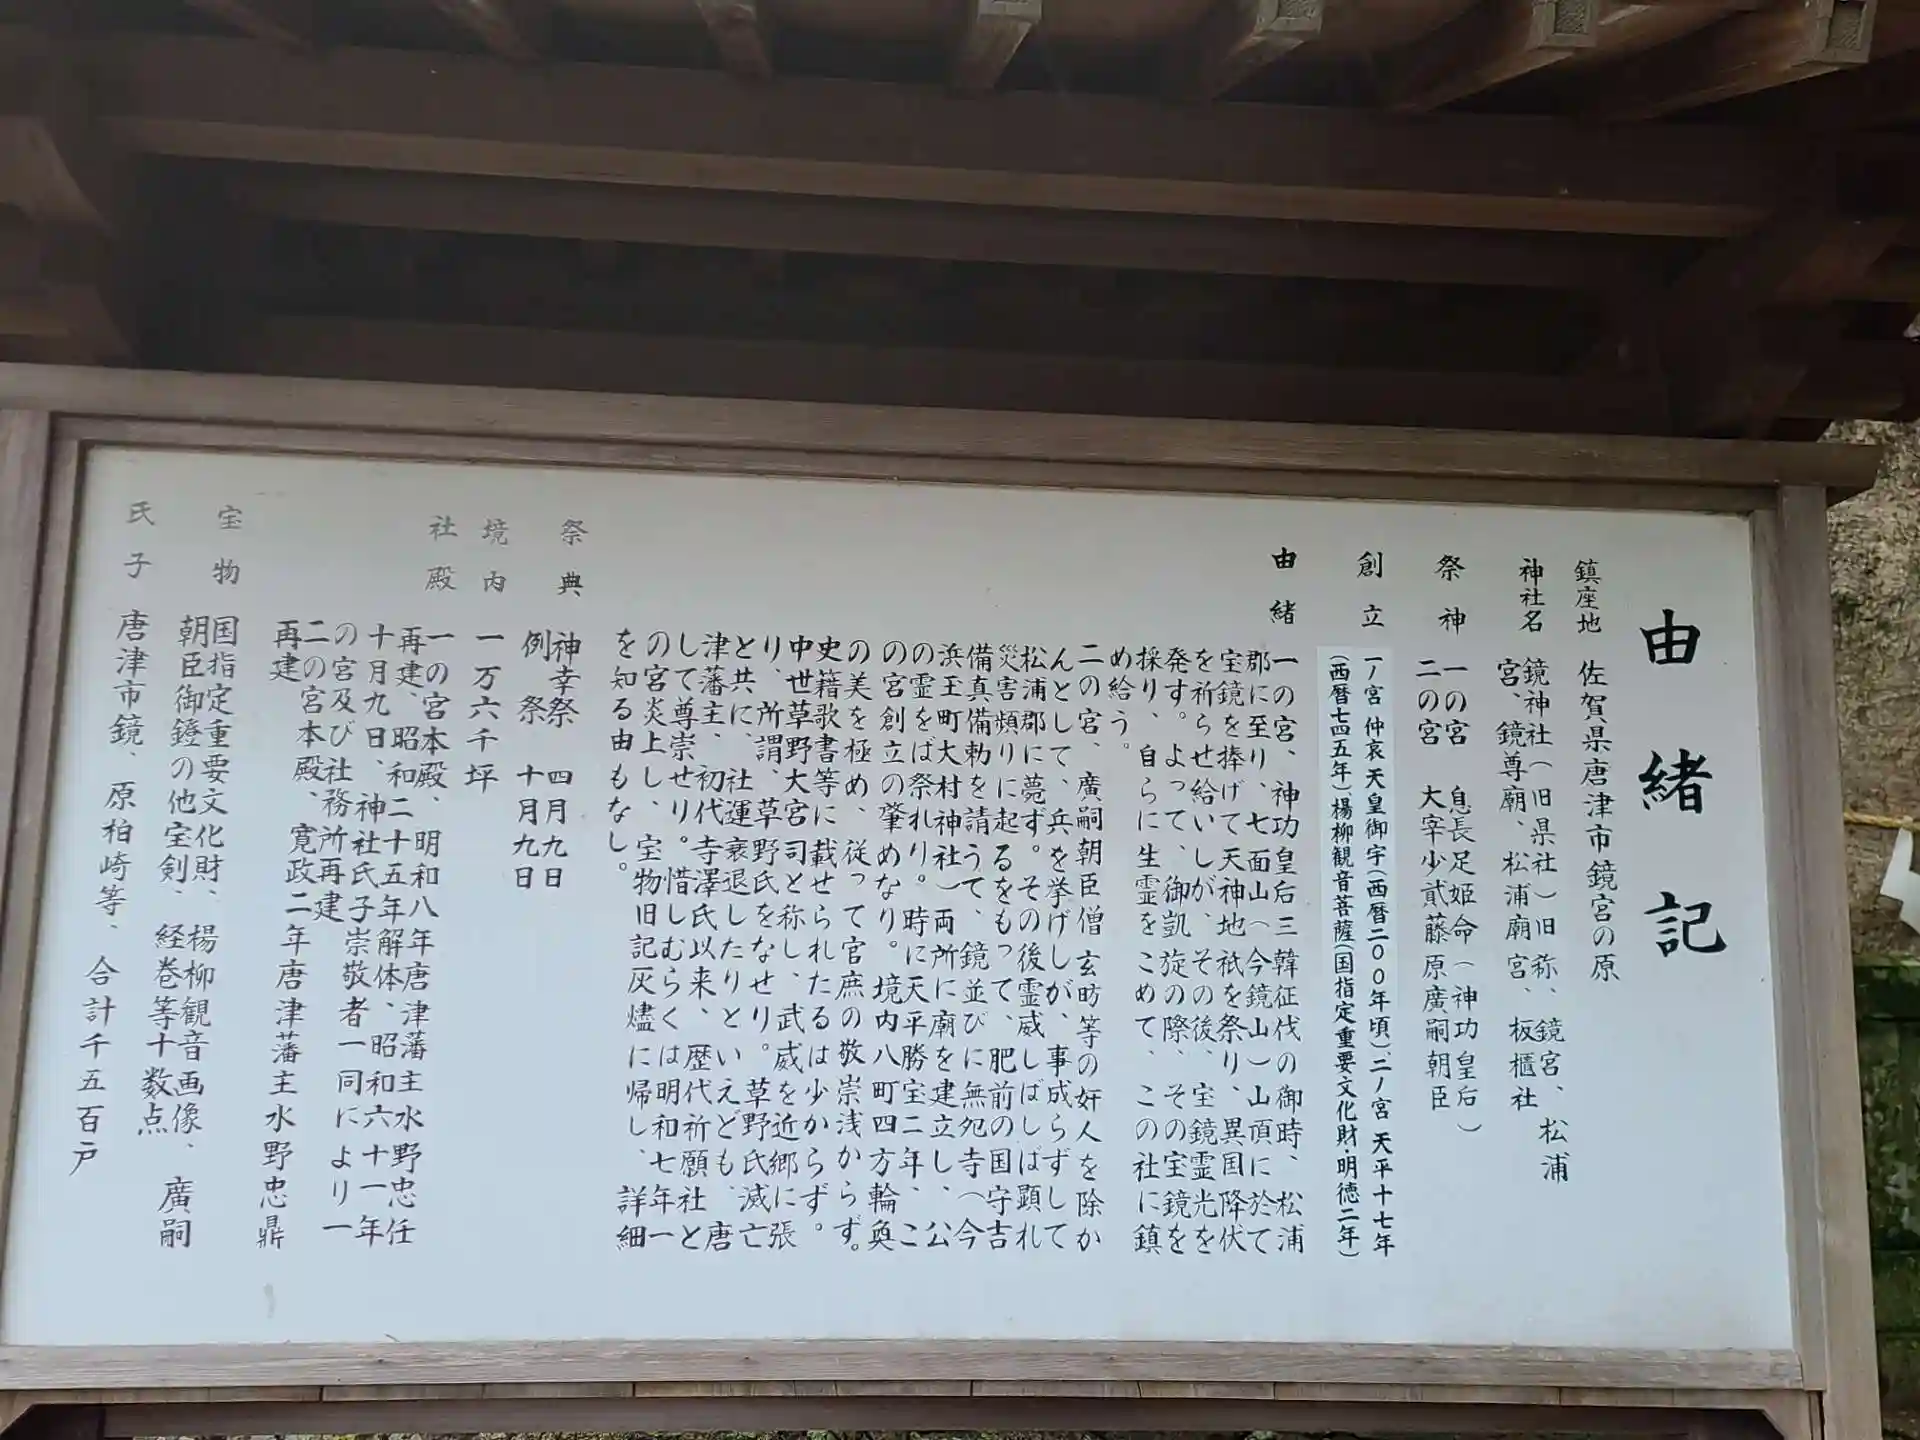 由緒記
鎮座地 佐賀県唐津市鏡宮の原
神社名 鏡神社(旧県社)旧称、鏡宮、松浦
宮、鏡尊廟、松浦廟宮、板櫃社
祭神 一の宮 息長足姫命(神功皇后)
二の宮 大宰少貳藤原廣嗣朝臣
創立 一ノ宮 仲哀天皇御宇(西暦二〇〇年頃)、二ノ宮 天平十七年
(西暦七四五年)楊柳観音菩薩(国指定重要文化財・明徳二年)
由緒 一の宮、神功皇后三韓征伐の御時、松浦
郡に至り、七面山(今鏡山)山頂に於て
宝鏡を捧げて天神地祇を祭り、異国降伏
を祈らせ給いしが、その後、宝鏡霊光を
発す。よって、御凱旋の際、その宝鏡を
採り、自らに生霊をこめて、この社に鎮
め給う。
二の宮、廣嗣朝臣僧玄昉等の奸人を除か
んとして、兵を挙げしが、事成らずして
松浦郡に薨ず。その後霊威しばしば顕れ
災害頻りに起るをもって、肥前の国守吉
備真備勅を請うて、鏡並びに無怨寺(今
浜玉町大村神社)両所に廟を建立し、公
の霊をば祭れり。時に天平勝宝二年、こ
の宮創立の肇めなり。境内八町四方輪奐
の美を極め、従って官庶の敬崇浅からず。
史籍歌書等に載せられたるは少からず。
中世草野大宮司と称し、武威を近郷に張
り、所謂、草野氏をなせり。草野氏滅亡
と共に、社運衰退したりといえども、唐
津藩主、初代寺澤氏以来、歴代祈願社と
して尊崇せり。惜しむらくは明和七年一
の宮炎上し、宝物旧記灰燼に帰し、詳細
を知る由もなし。
祭典 神幸祭 四月九日
例祭 十月九日
境内 一万六千坪
社殿 一の宮本殿、明和八年唐津藩主水野忠任
再建、昭和二十五年解体、昭和六十一年
十月九日、神社氏子崇敬者一同により一
の宮及び社務所再建
二の宮本殿、寛政二年唐津藩主水野忠鼎
再建
宝物 国指定重要文化財、楊柳観音画像、廣嗣
朝臣御鐙の他宝剣、経巻等十数点
氏子 唐津市鏡、原柏崎等、合計千五百戸